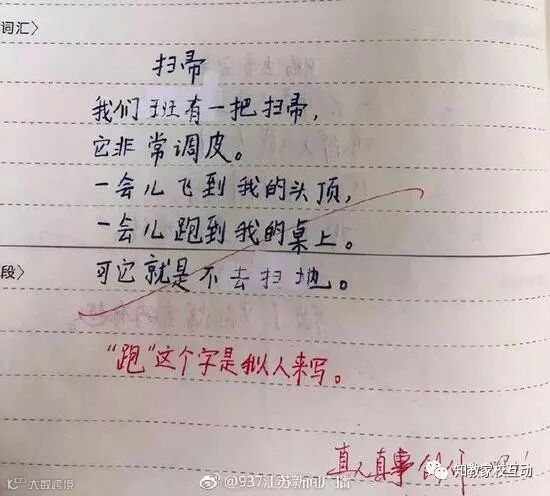 词汇〉
扫帚
我们班有一把扫帚,
它非常调皮。
一会儿飞到我的头顶,
一会儿跑到我的桌上。
段〉
可它就是不去扫地。
“跑”这个字是拟人来写。
真人真事
知教家校互动
@937江苏新闻广播
大数跨境